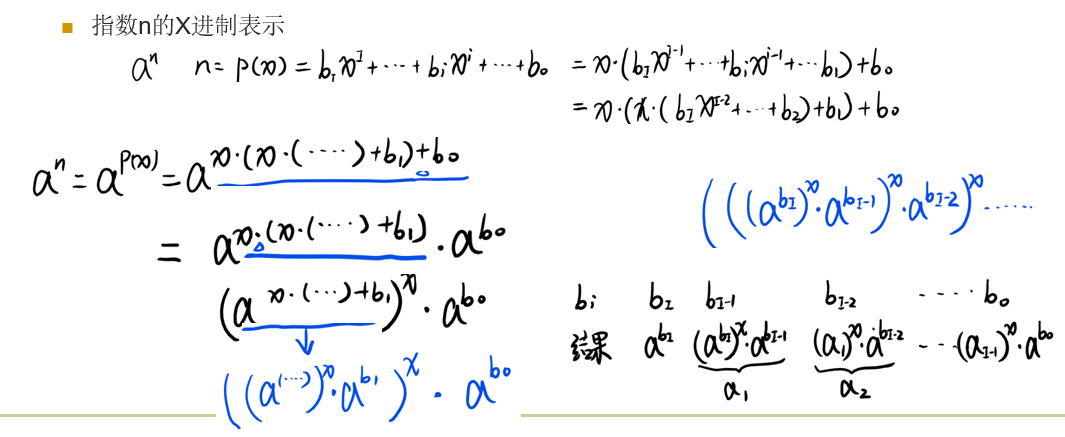 指数n的X进制表示
aⁿ n = p(x) = b_I x^I + ⋯ + b_i x^i + ⋯ + b₀ = x·(b_I x^{I-1} + ⋯ + b_i x^{i-1} + ⋯ b₁) + b₀
= x·(x·(b_I x^{I-2} + ⋯ + b₂) + b₁) + b₀
aⁿ = a^{p(x)} = a^{x·(x·(⋯⋯) + b₁) + b₀}
= a^{x·(x·(⋯⋯) + b₁)} · a^{b₀}
(a^{x·(⋯) + b₁})^x · a^{b₀}
((a^{(⋯)})^x · a^{b₁})^x · a^{b₀}
(((a^{b_I})^x · a^{b_{I-1}})^x · a^{b_{I-2}})^x ⋯⋯
b_i b_I b_{I-1} b_{I-2} ⋯⋯ b₀
结果 a^{b_I} (a^{b_I})^x · a^{b_{I-1}} (a₁)^x · a^{b_{I-2}} ⋯ (a_{I-1})^x · a^{b₀}
a₁ a₂